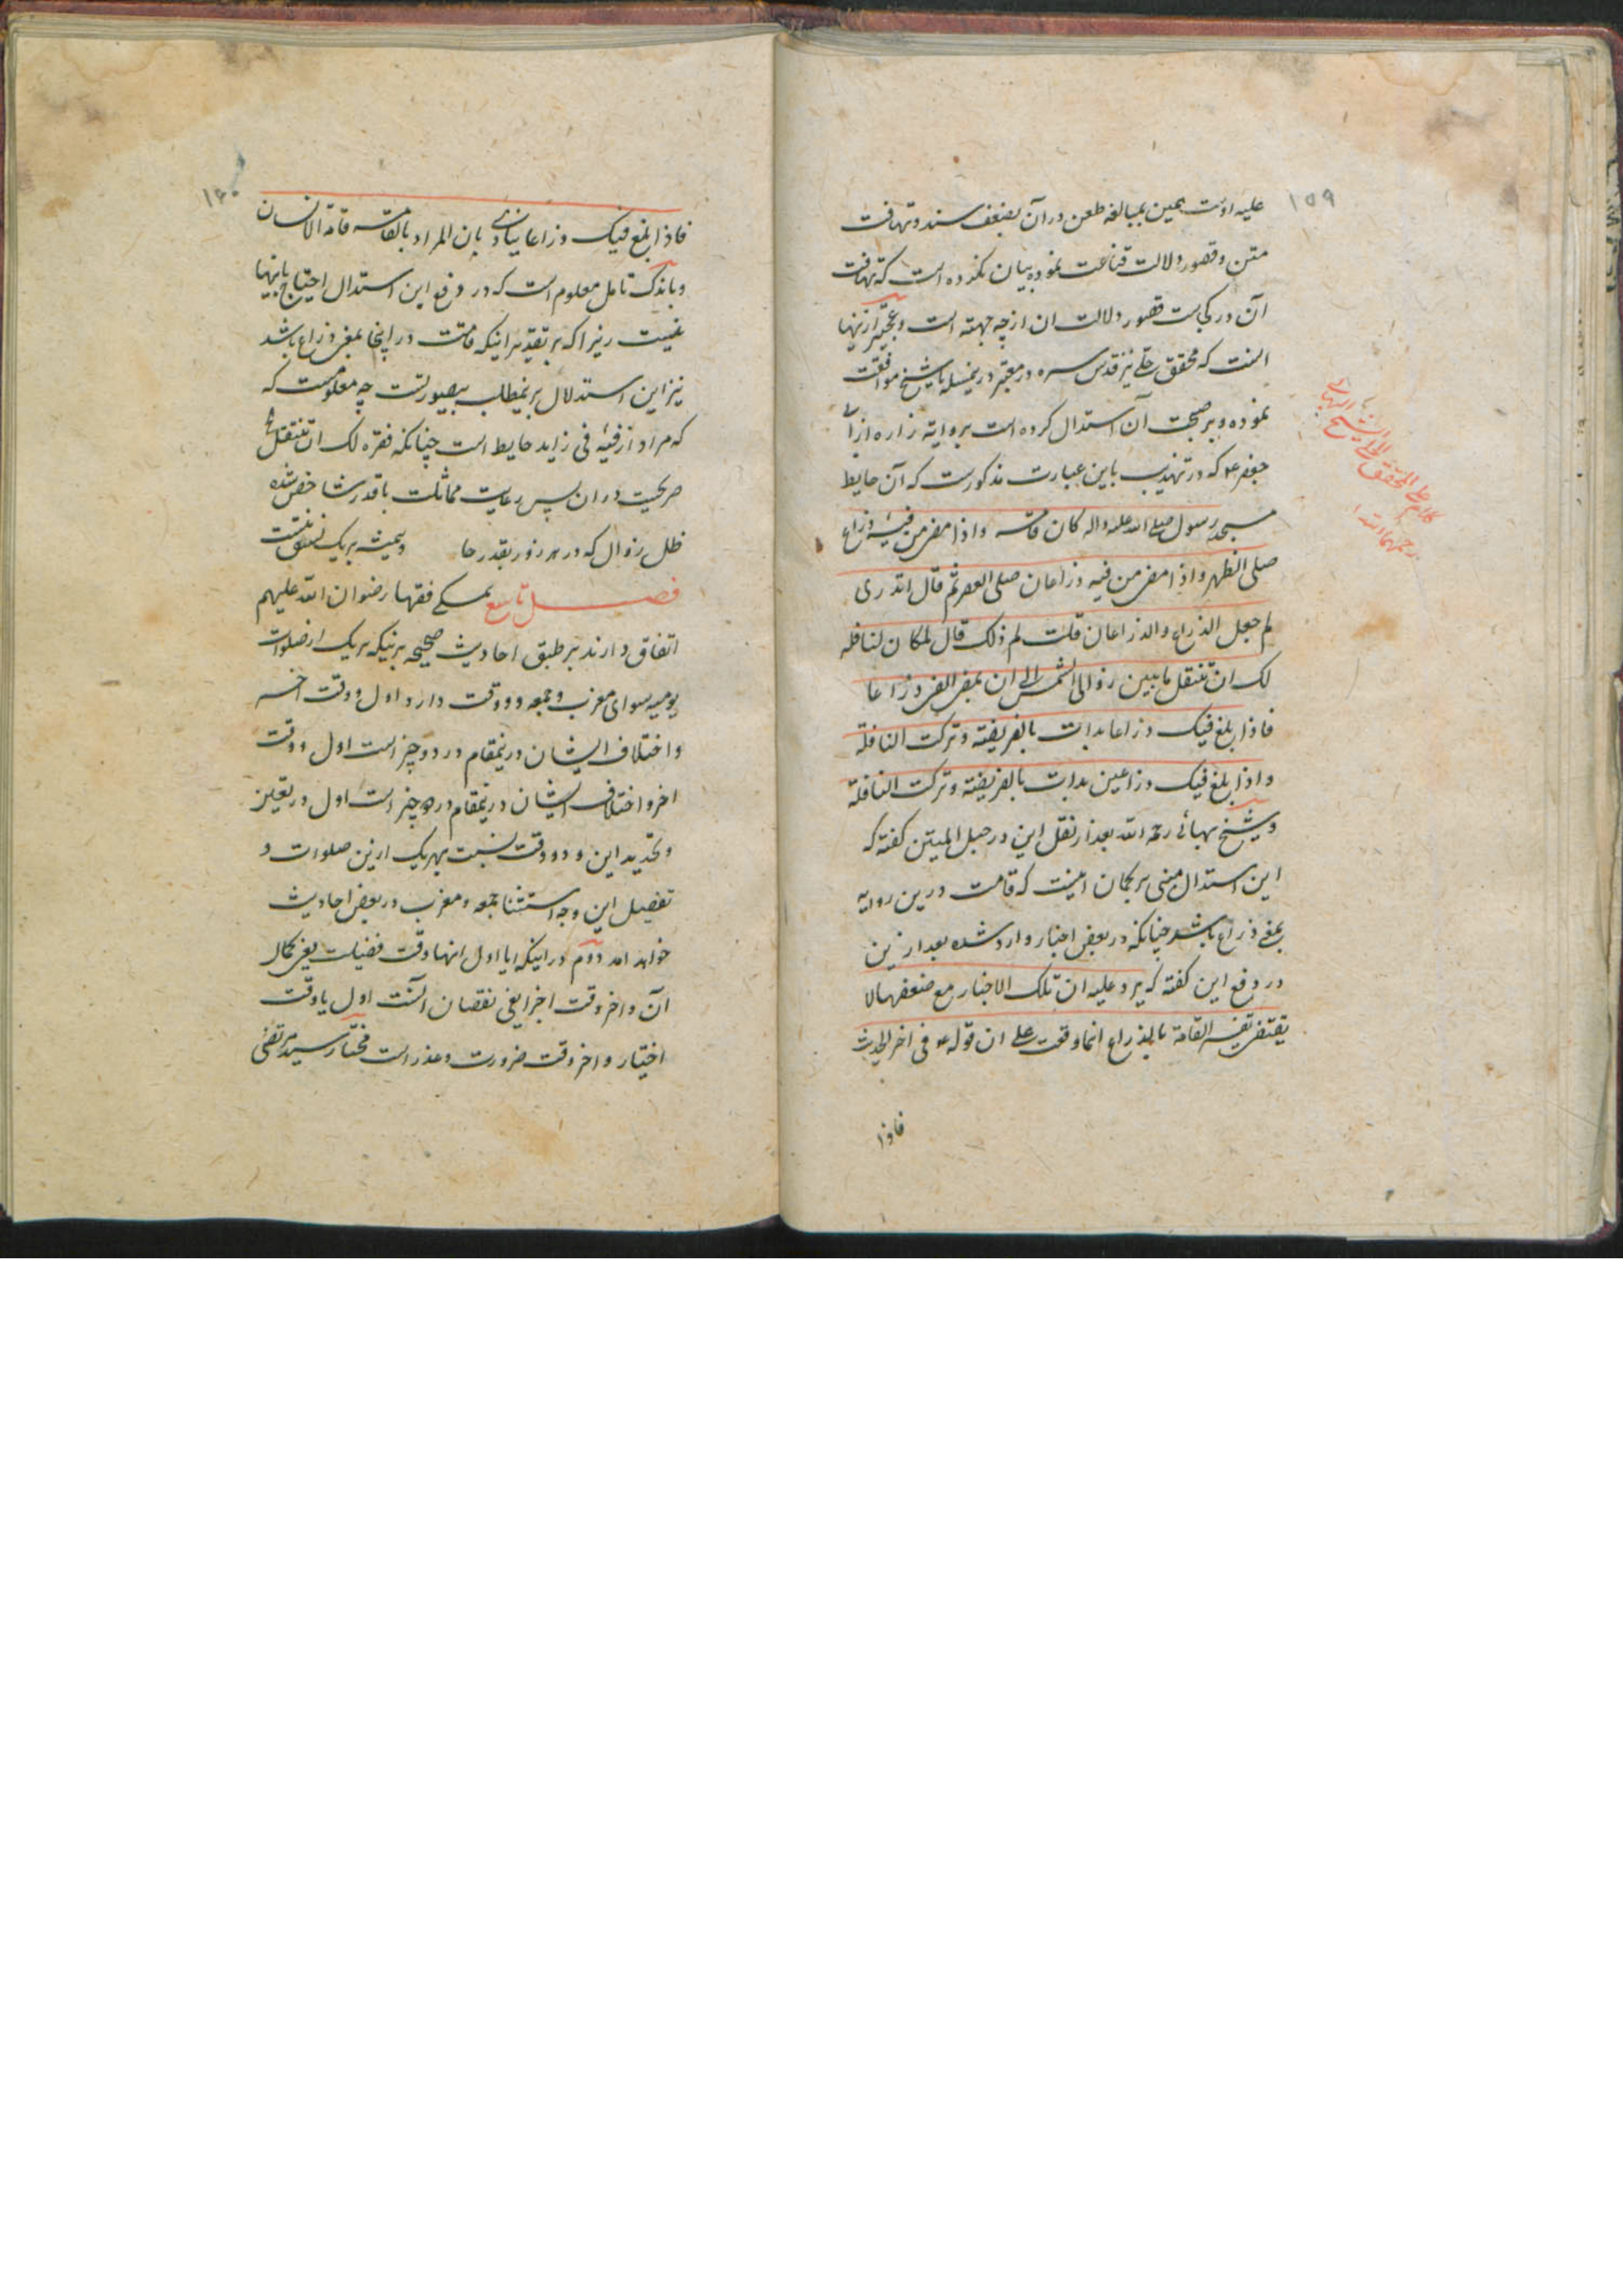 ۱۵۹
علیه اوست همین بمبالغه طعن در آن بضعف سند و تهافت
متن و قصور دلالت قناعت نموده بیان نکرده است که تهافت
آن در کجاست قصور دلالت ان از چه جهته است و عجبتر ازینها
انست که محقق حلی نیز قدس سره در معتبر درینمسله با شیخ موافقت
نموده و بر صحت آن استدلال کرده است بروایة زراره از ابی
جعفر ع که در تهذیب باین عبارت مذکورست که آن حایط
مسجد رسول صلی الله علیه واله کان قامة واذا مضی من فیئه ذراع
صلی الظهر واذا مضی من فیه ذراعان صلی العصر ثم قال اتدری
لم جعل الذراع والذراعان قلت لم ذلک قال لمکان لنافله
لک ان تتنفل مابین زوال الشمس الی ان یمضی الفی ذراعا
فاذا بلغ فیک ذراعا بدات بالفریضة وترکت النافلة
واذا بلغ فیک ذراعین بدات بالفریضة وترکت النافلة
و شیخ بهائی رحمه الله بعد از نقل این در حبل المتین کفته که
این استدلال مبنی بر کمان اینست که قامت درین روایه
بمعنی ذراع باشد چنانکه در بعض اخبار وارد شده بعد ازین
در دفع این کفته که یرد علیه ان تلک الاخبار مع ضعفها لا
یقتضی تفسیر القامة بالذراع انما وقعت علی ان قوله ع فی اخر الحدیث
فاذا
کلام علی المحقق والشیخ البهائی
رحمهما الله
۱۶۰
فاذا بلغ فیک ذراعا ینادی بان المراد بالقامة قامة الانسان
و باندک تامل معلوم است که در دفع این استدلال احتیاج باینها
نیست زیرا که بر تقدیر اینکه قامت در اینجا بمعنی ذراع باشد
نیز این استدلال برینمطلب بیصورتست چه معلومست که
که مراد از فیئه فی زاید حایط است چنانکه فقره لک ان تتنفل
صریحست در ان پس رعایت مماثلت با قدر شاخص شده
ظل زوال که در هر روز بقدر خا و همیشه بریک نسق نیست
فصل تاسع همکی فقها رضوان الله علیهم
اتفاق دارند بر طبق احادیث صحیحه برینکه هریک از صلوات
یومیه سوای مغرب و جمعه دو وقت دارد اول و وقت اخر
و اختلاف ایشان درینمقام در دو چیز است اول و وقت
اخر و اختلاف ایشان درینمقام در دو چیز است اول در تعیین
و تحدید این دو وقت نسبت بهریک ازین صلوات و
تفصیل این وجه استثنا جمعه و مغرب در بعض احادیث
خواهد امد دوم در اینکه ایا اول انها وقت فضیلت یعنی کمال
آن و اخر وقت اجزا یعنی نقصان آنست اول یا وقت
اختیار و اخر وقت ضرورت و عذر است مختار سید مرتضی